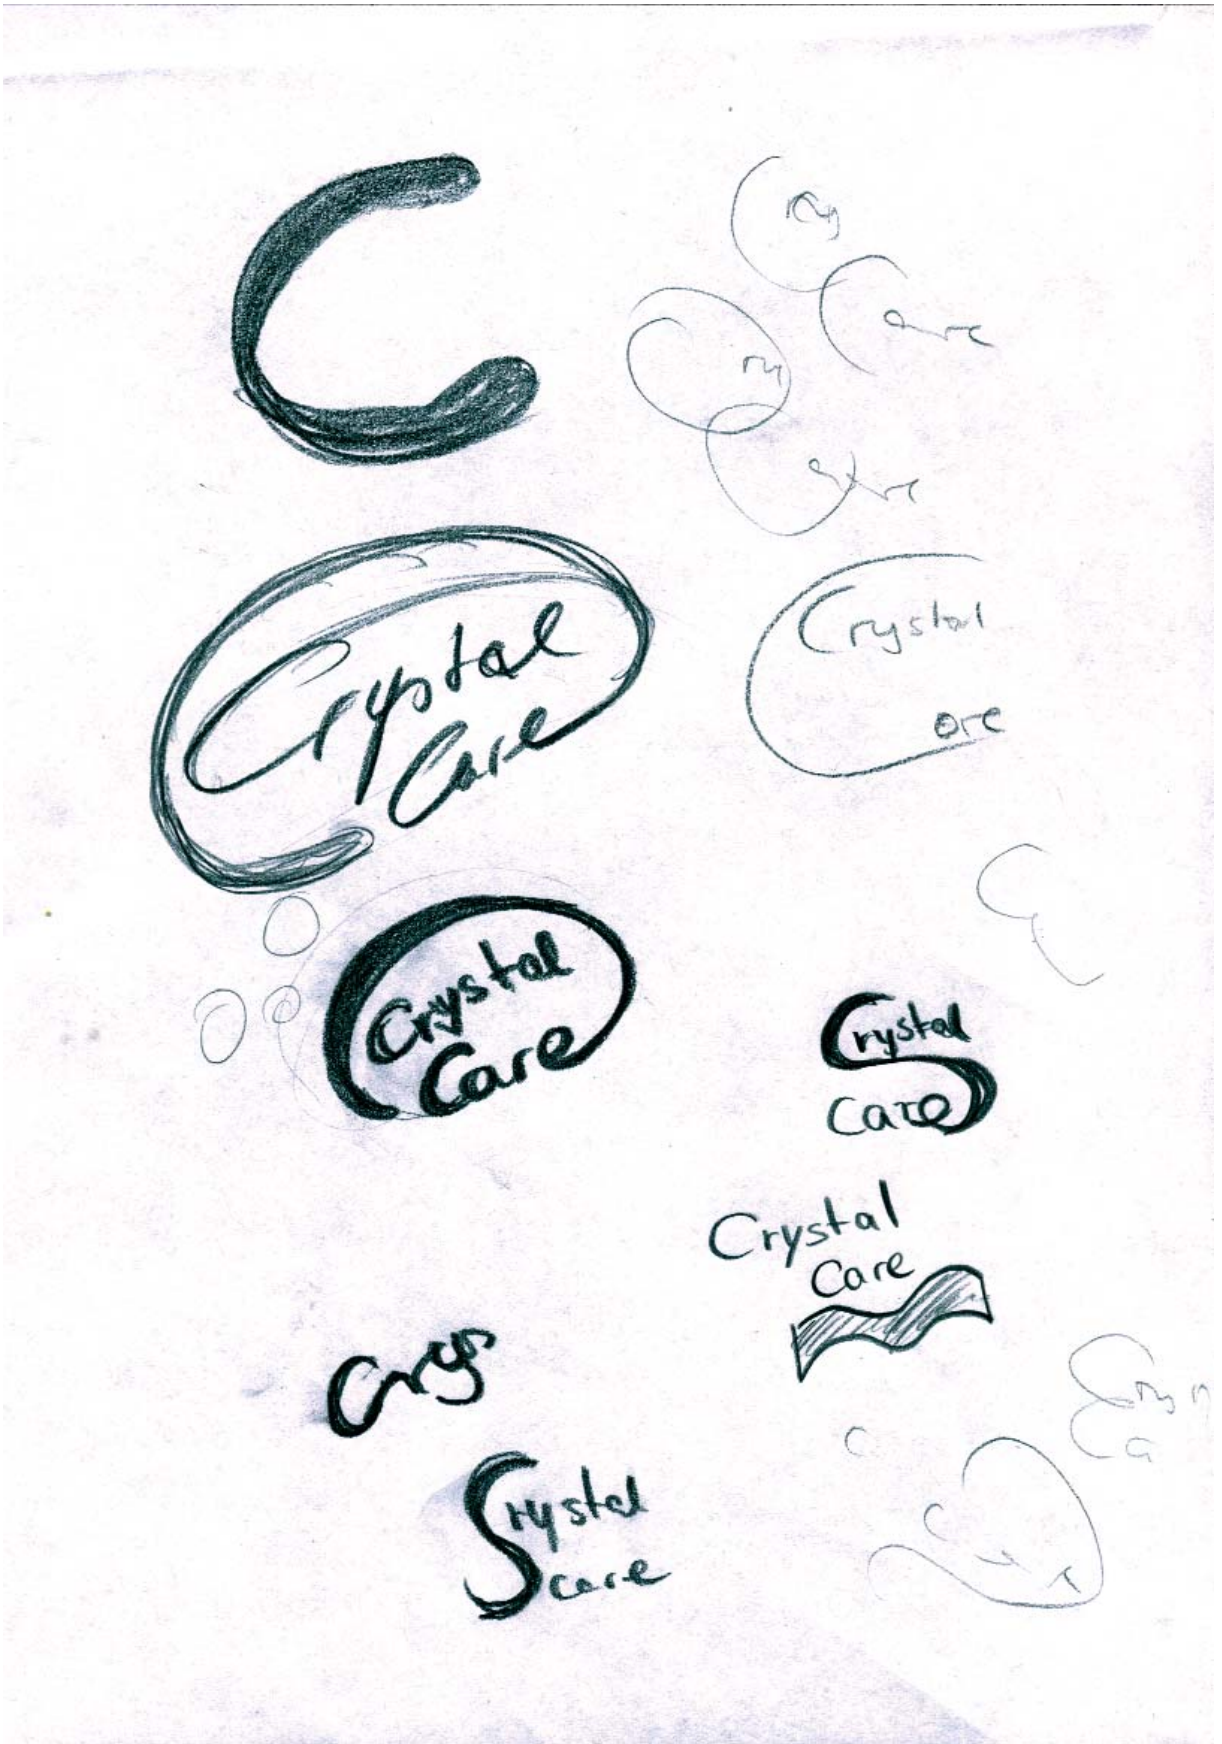 C
Care
Crystal
Care
Crystal
ore
Crystal
Care
Crystal
Care
Crystal
Care
Crys
Crystal
care